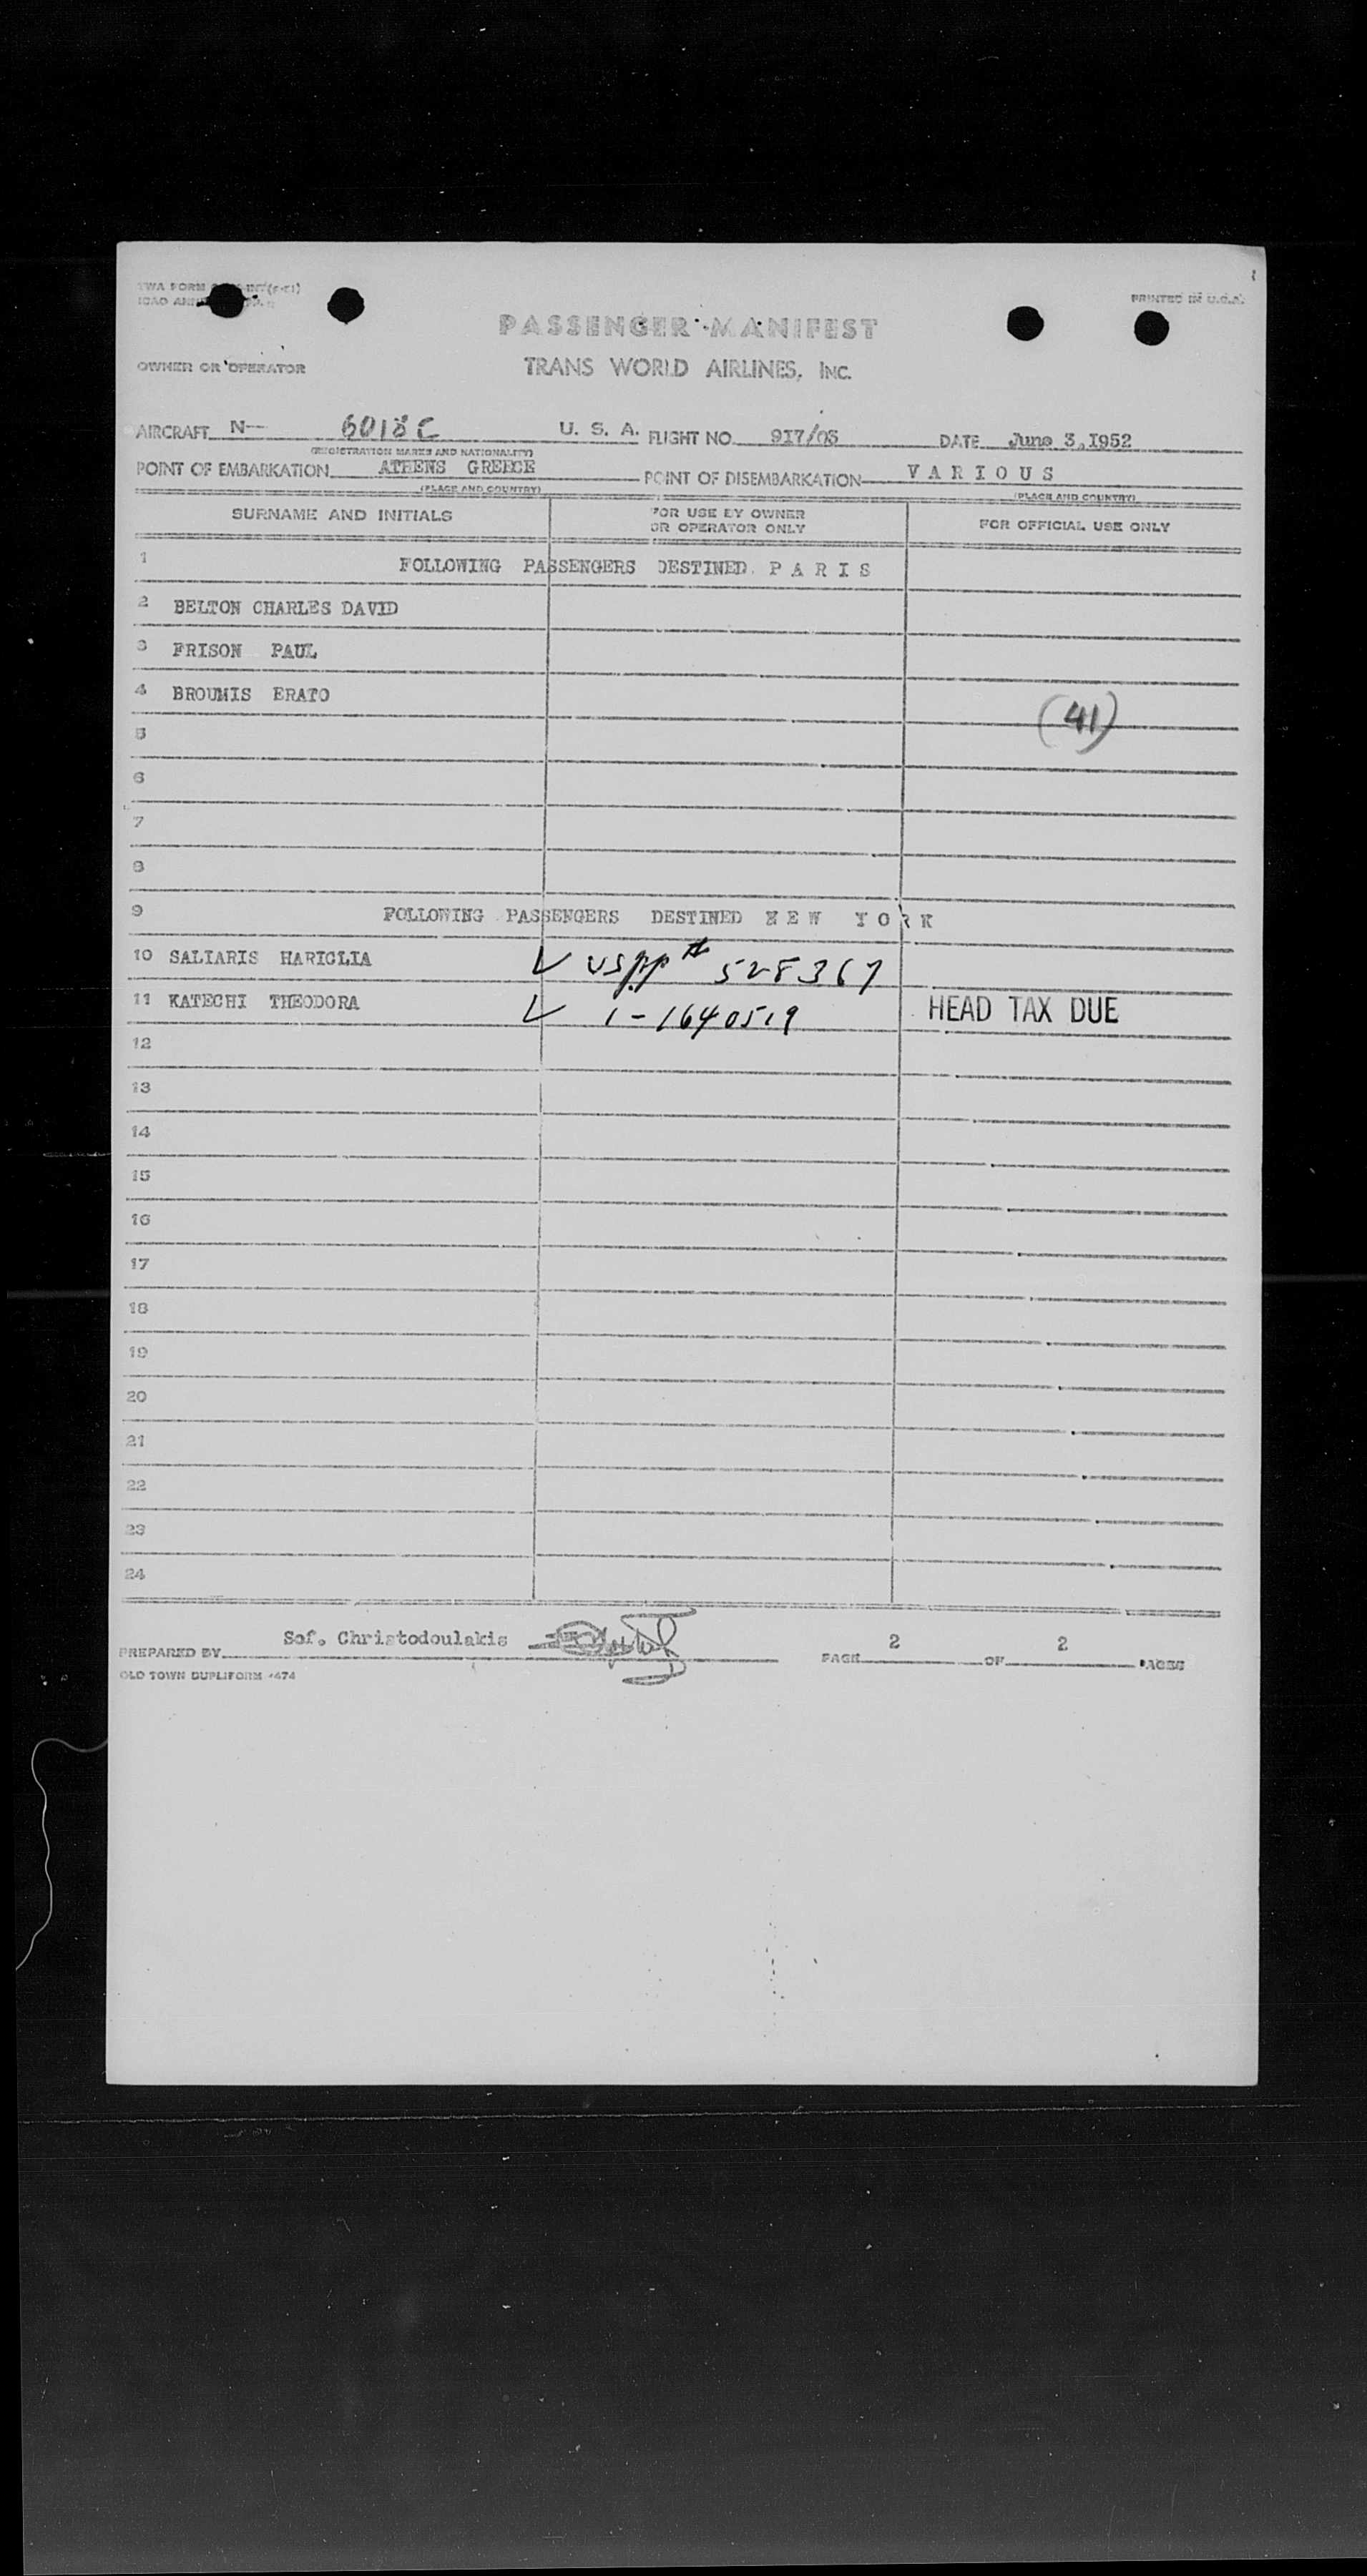 TWA FORM
ICAO
PRINTED IN U.S.A.
PASSENGER MANIFEST
OWNER OR OPERATOR
TRANS WORLD AIRLINES, INC.
AIRCRAFT N- 6018C U. S. A. FLIGHT NO. 917/03 DATE June 3,1952
(REGISTRATION MARKS AND NATIONALITY)
POINT OF EMBARKATION ATHENS GREECE POINT OF DISEMBARKATION V A R I O U S
(PLACE AND COUNTRY) (PLACE AND COUNTRY)
SURNAME AND INITIALS FOR USE BY OWNER OR OPERATOR ONLY FOR OFFICIAL USE ONLY
1 FOLLOWING PASSENGERS DESTINED P A R I S
2 BELTON CHARLES DAVID
3 FRISON PAUL
4 BROUMIS ERATO
(41)
5
6
7
8
9 FOLLOWING PASSENGERS DESTINED N E W Y O R K
10 SALIARIS HARIGLIA USPP# 528367
11 KATECHI THEODORA 1-1640519 HEAD TAX DUE
12
13
14
15
16
17
18
19
20
21
22
23
24
PREPARED BY Sof. Christodoulakis PAGE 2 OF 2 PAGES
OLD TOWN DUPLIFORM -474